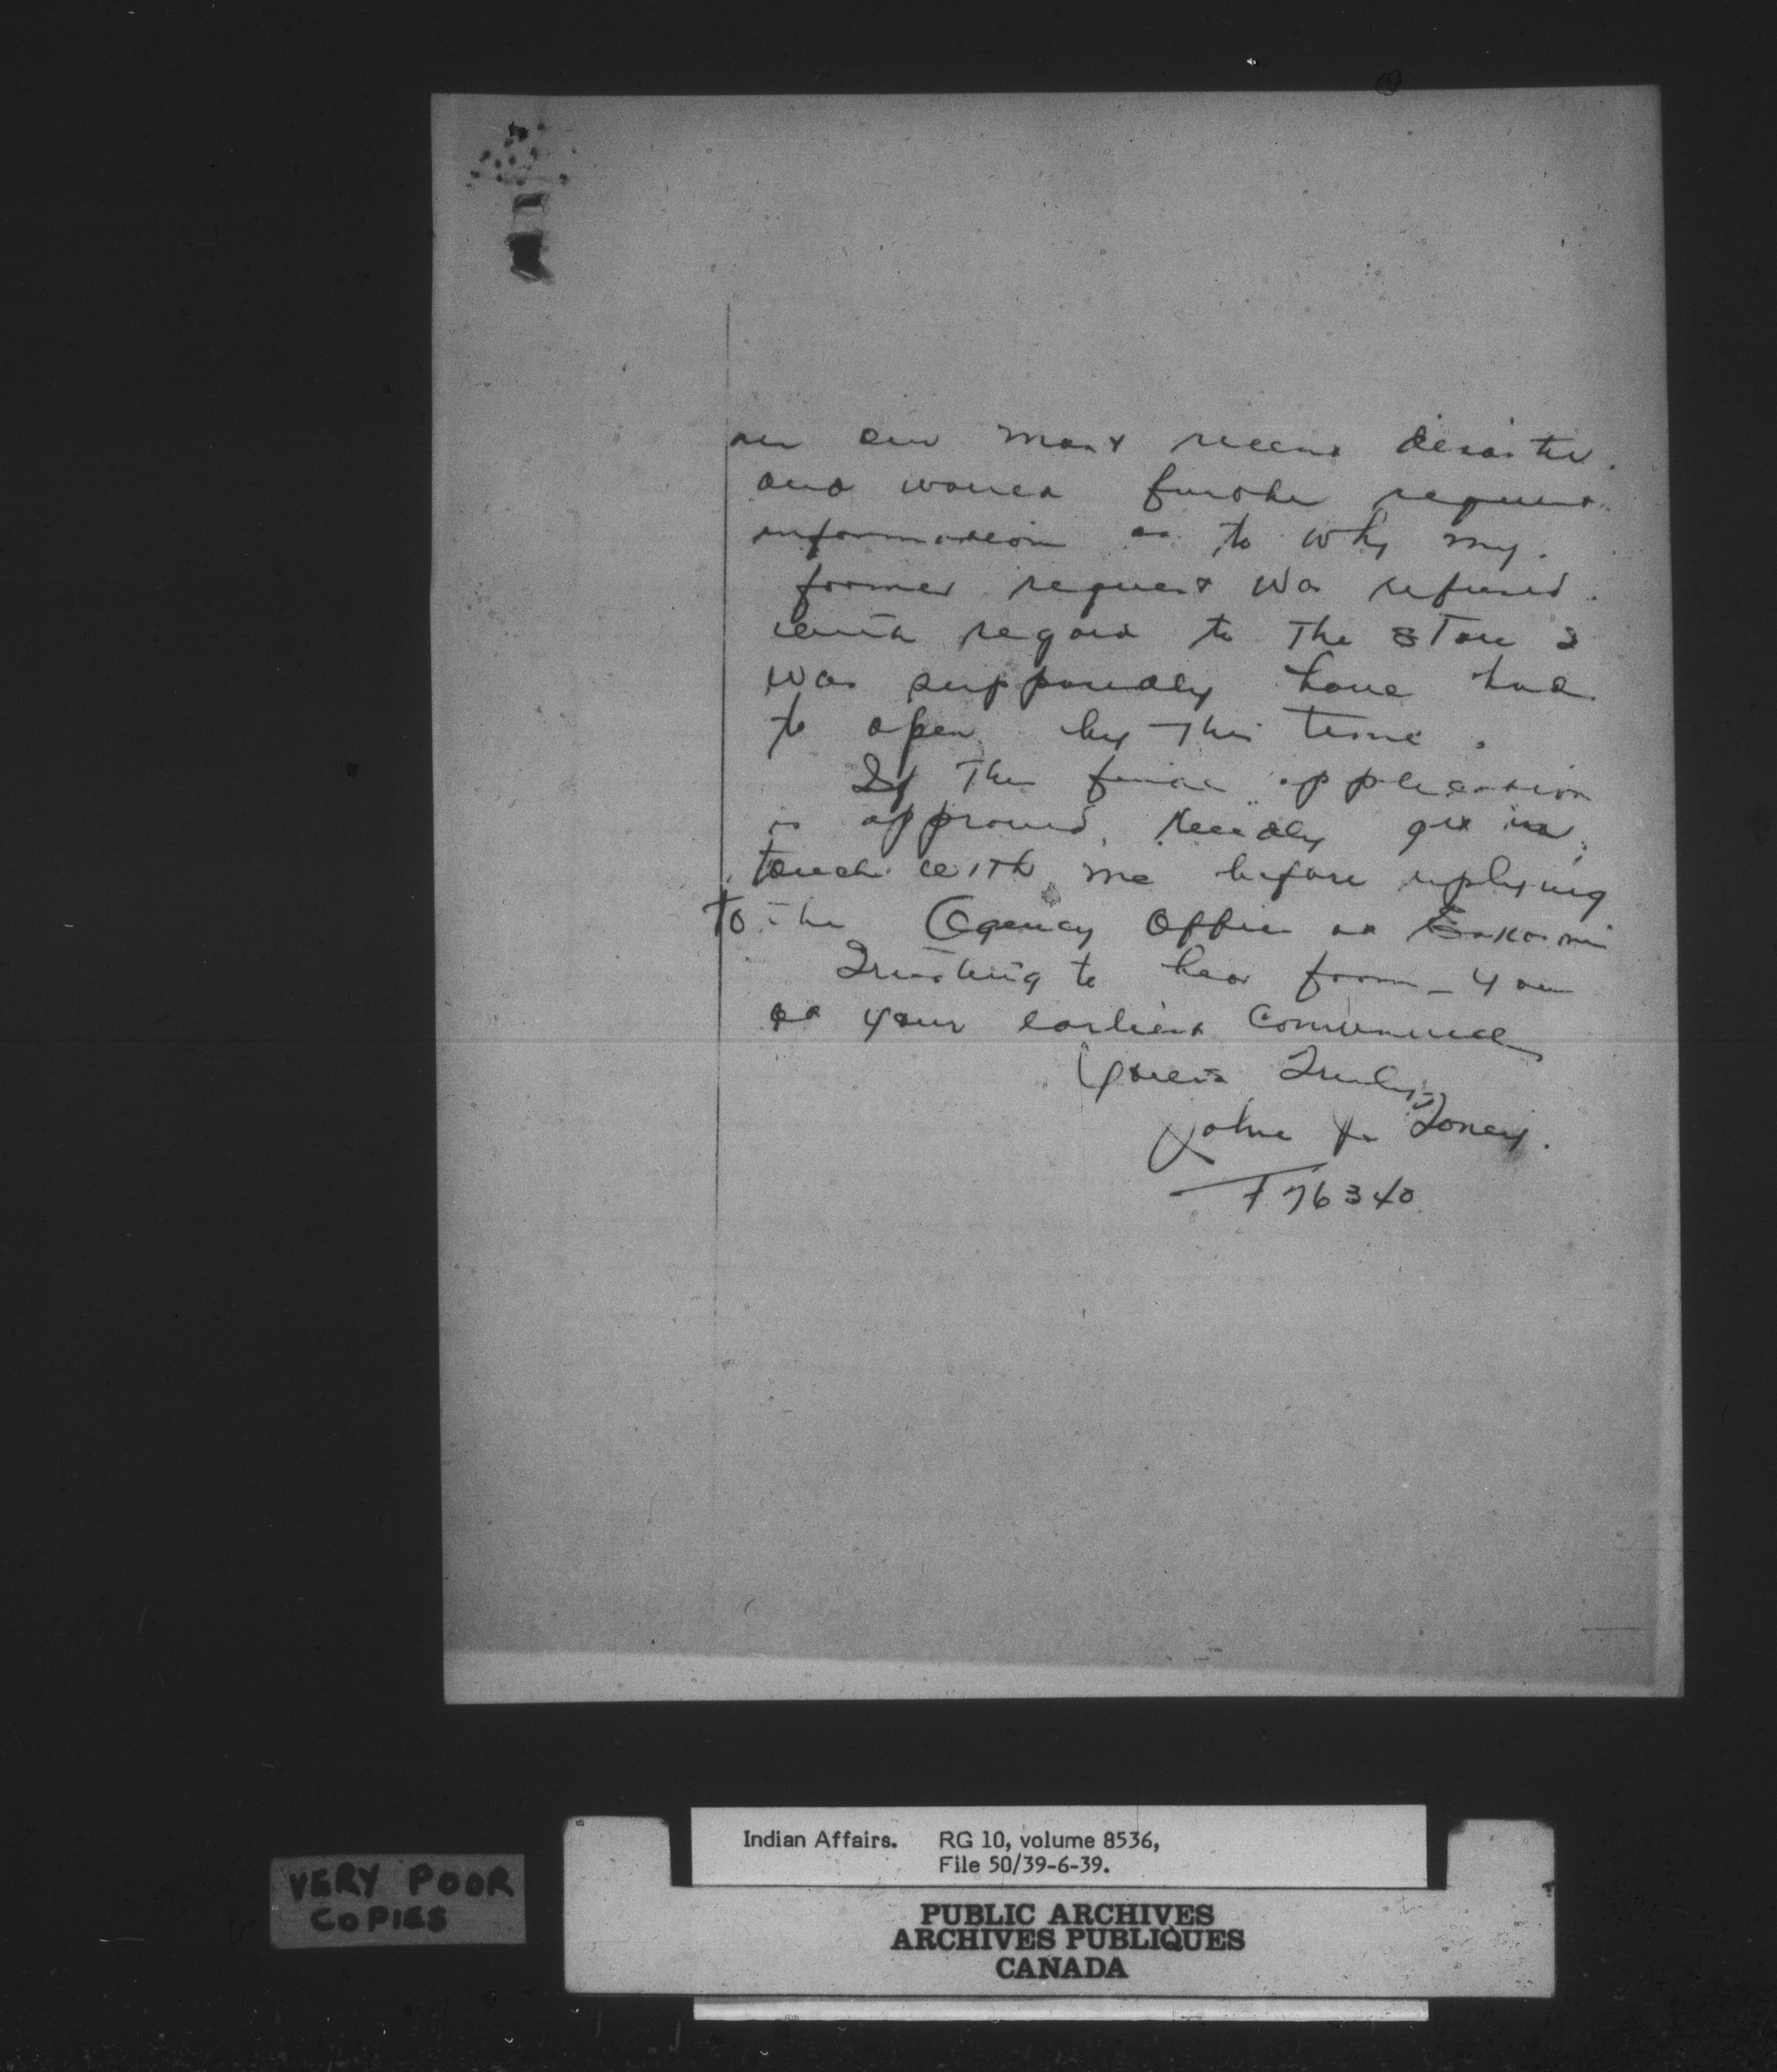 our most recent disaster.
and would further request
information as to why my
former request was refused.
with regard to The STore I
was supposedly have had
to open by This time.
If This application
is approved, kindly get in
touch with me before replying
To The Agency Office at Eskasoni
Trusting to hear from you
at your earliest convenience
Yours Truly,
John Toney.
F 76340
Indian Affairs. RG 10, volume 8536,
File 50/39-6-39.
VERY POOR
COPIES
PUBLIC ARCHIVES
ARCHIVES PUBLIQUES
CANADA